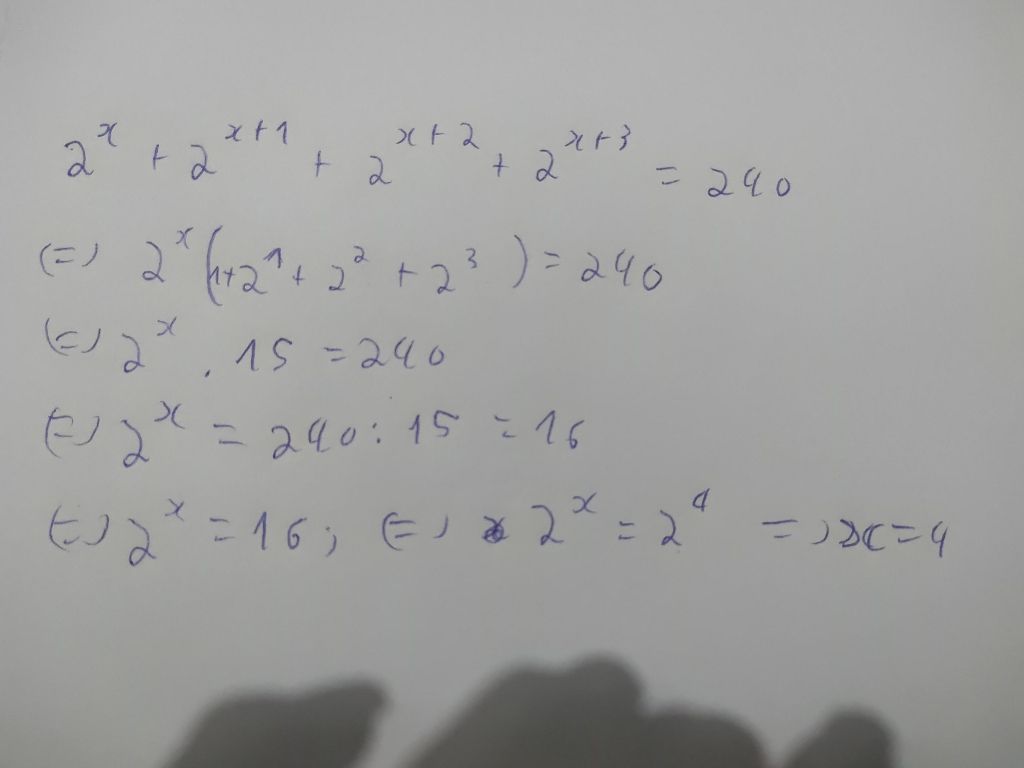 2^x + 2^{x+1} + 2^{x+2} + 2^{x+3} = 240
(=) 2^x (1+2^1 + 2^2 + 2^3) = 240
(=) 2^x . 15 = 240
(=) 2^x = 240 : 15 = 16
(=) 2^x = 16; (=) 2^x = 2^4 =) x = 4